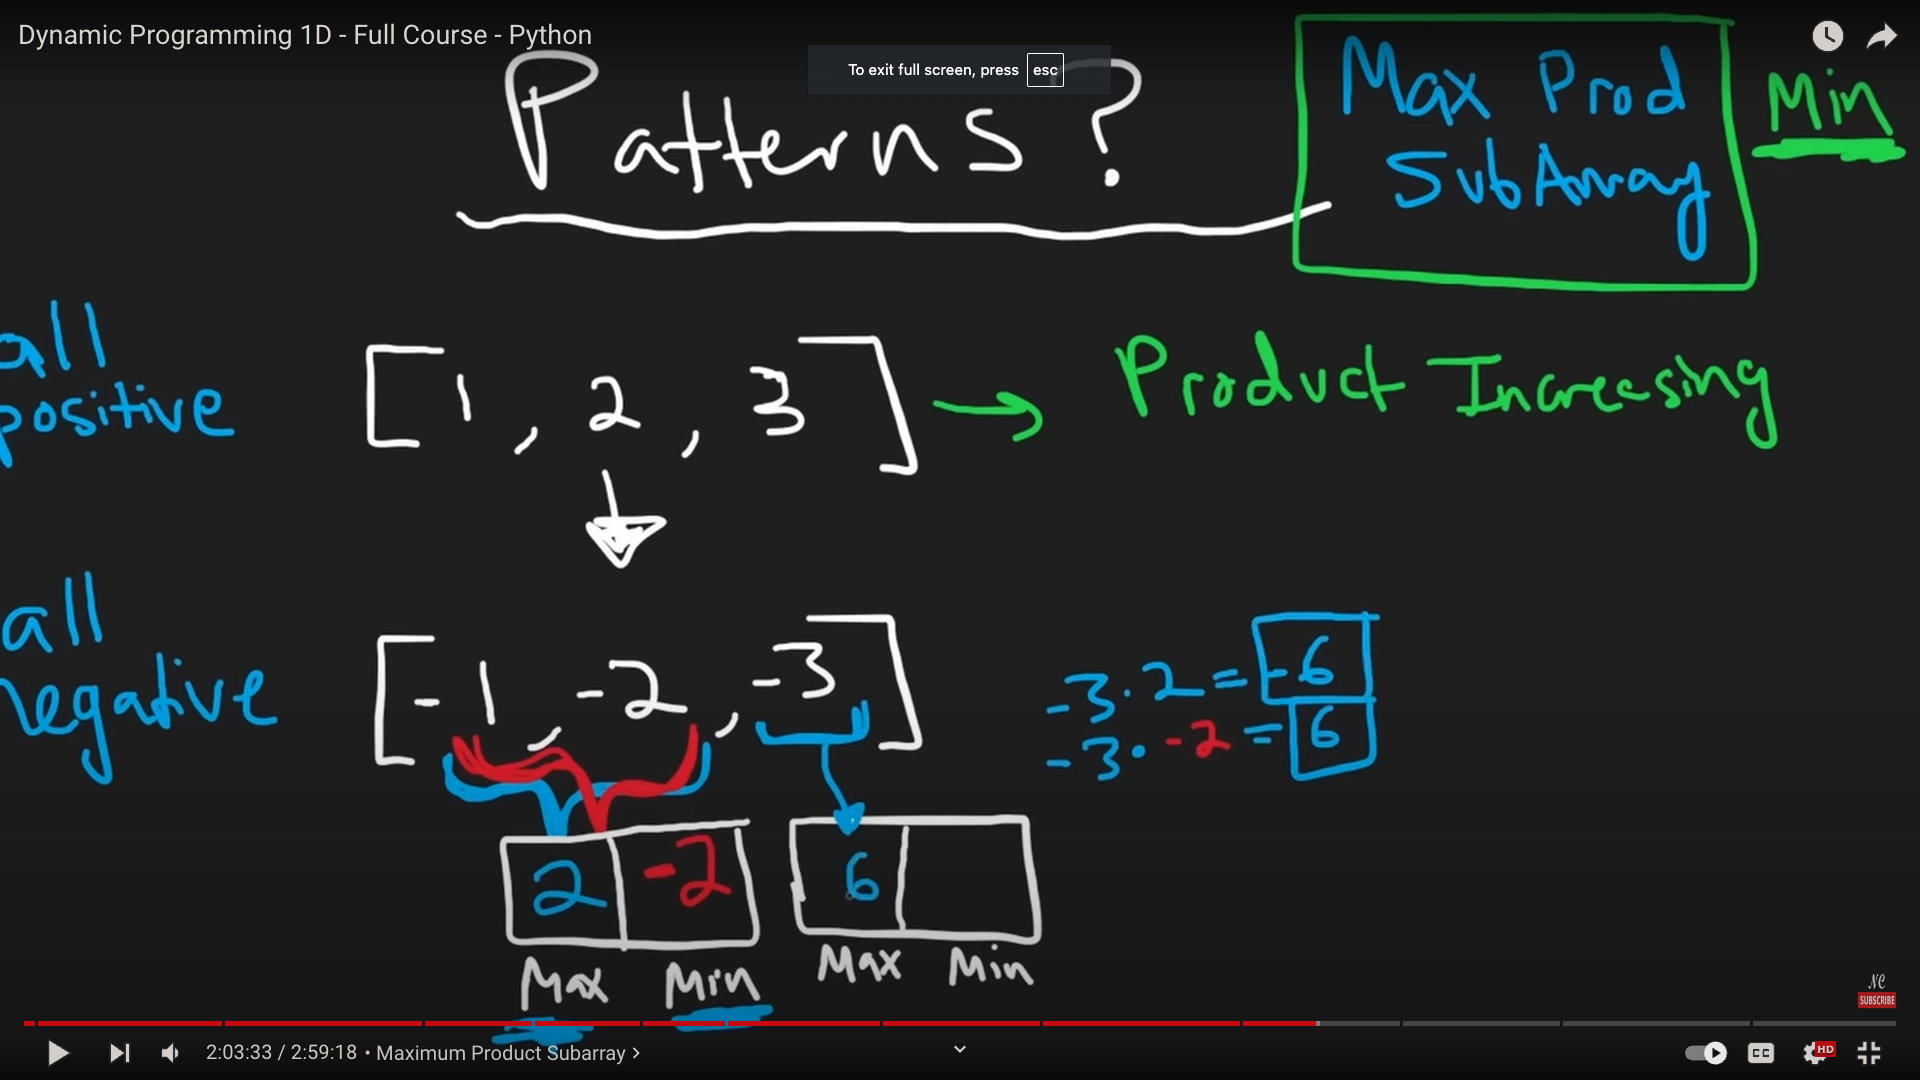 Dynamic Programming 1D - Full Course - Python
To exit full screen, press esc
Patterns?
Max Prod
SubArray
Min
all
positive
[1, 2, 3] → Product Increasing
all
negative
[-1, -2, -3]
-3·2=-6
-3·-2=6
2 -2
Max Min
6
Max Min
NC
SUBSCRIBE
2:03:33 / 2:59:18 • Maximum Product Subarray >
CC
HD